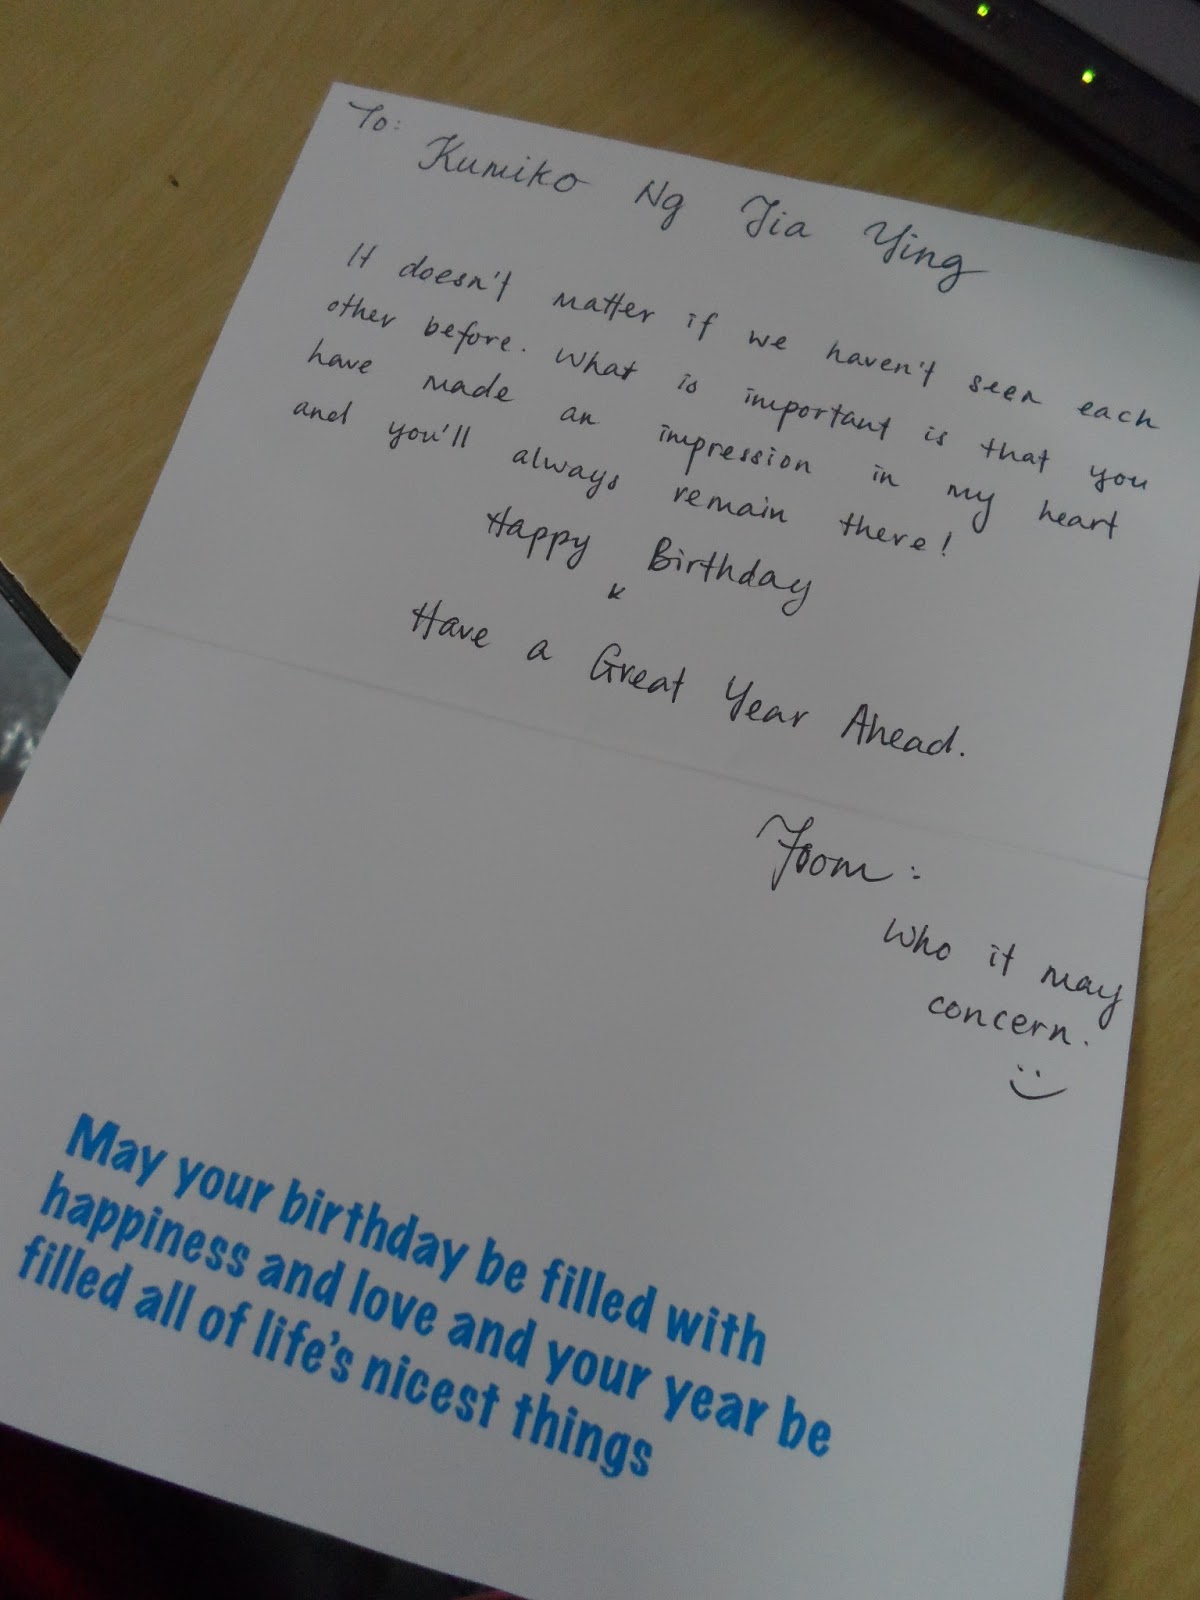 To:
Kumiko Ng Jia Ying
It doesn't matter if we haven't seen each
other before. What is important is that you
have made an impression in my heart
and you'll always remain there!
Happy Birthday
&
Have a Great Year Ahead.
From:
Who it may
concern.
:)
May your birthday be filled with
happiness and love and your year be
filled all of life's nicest things